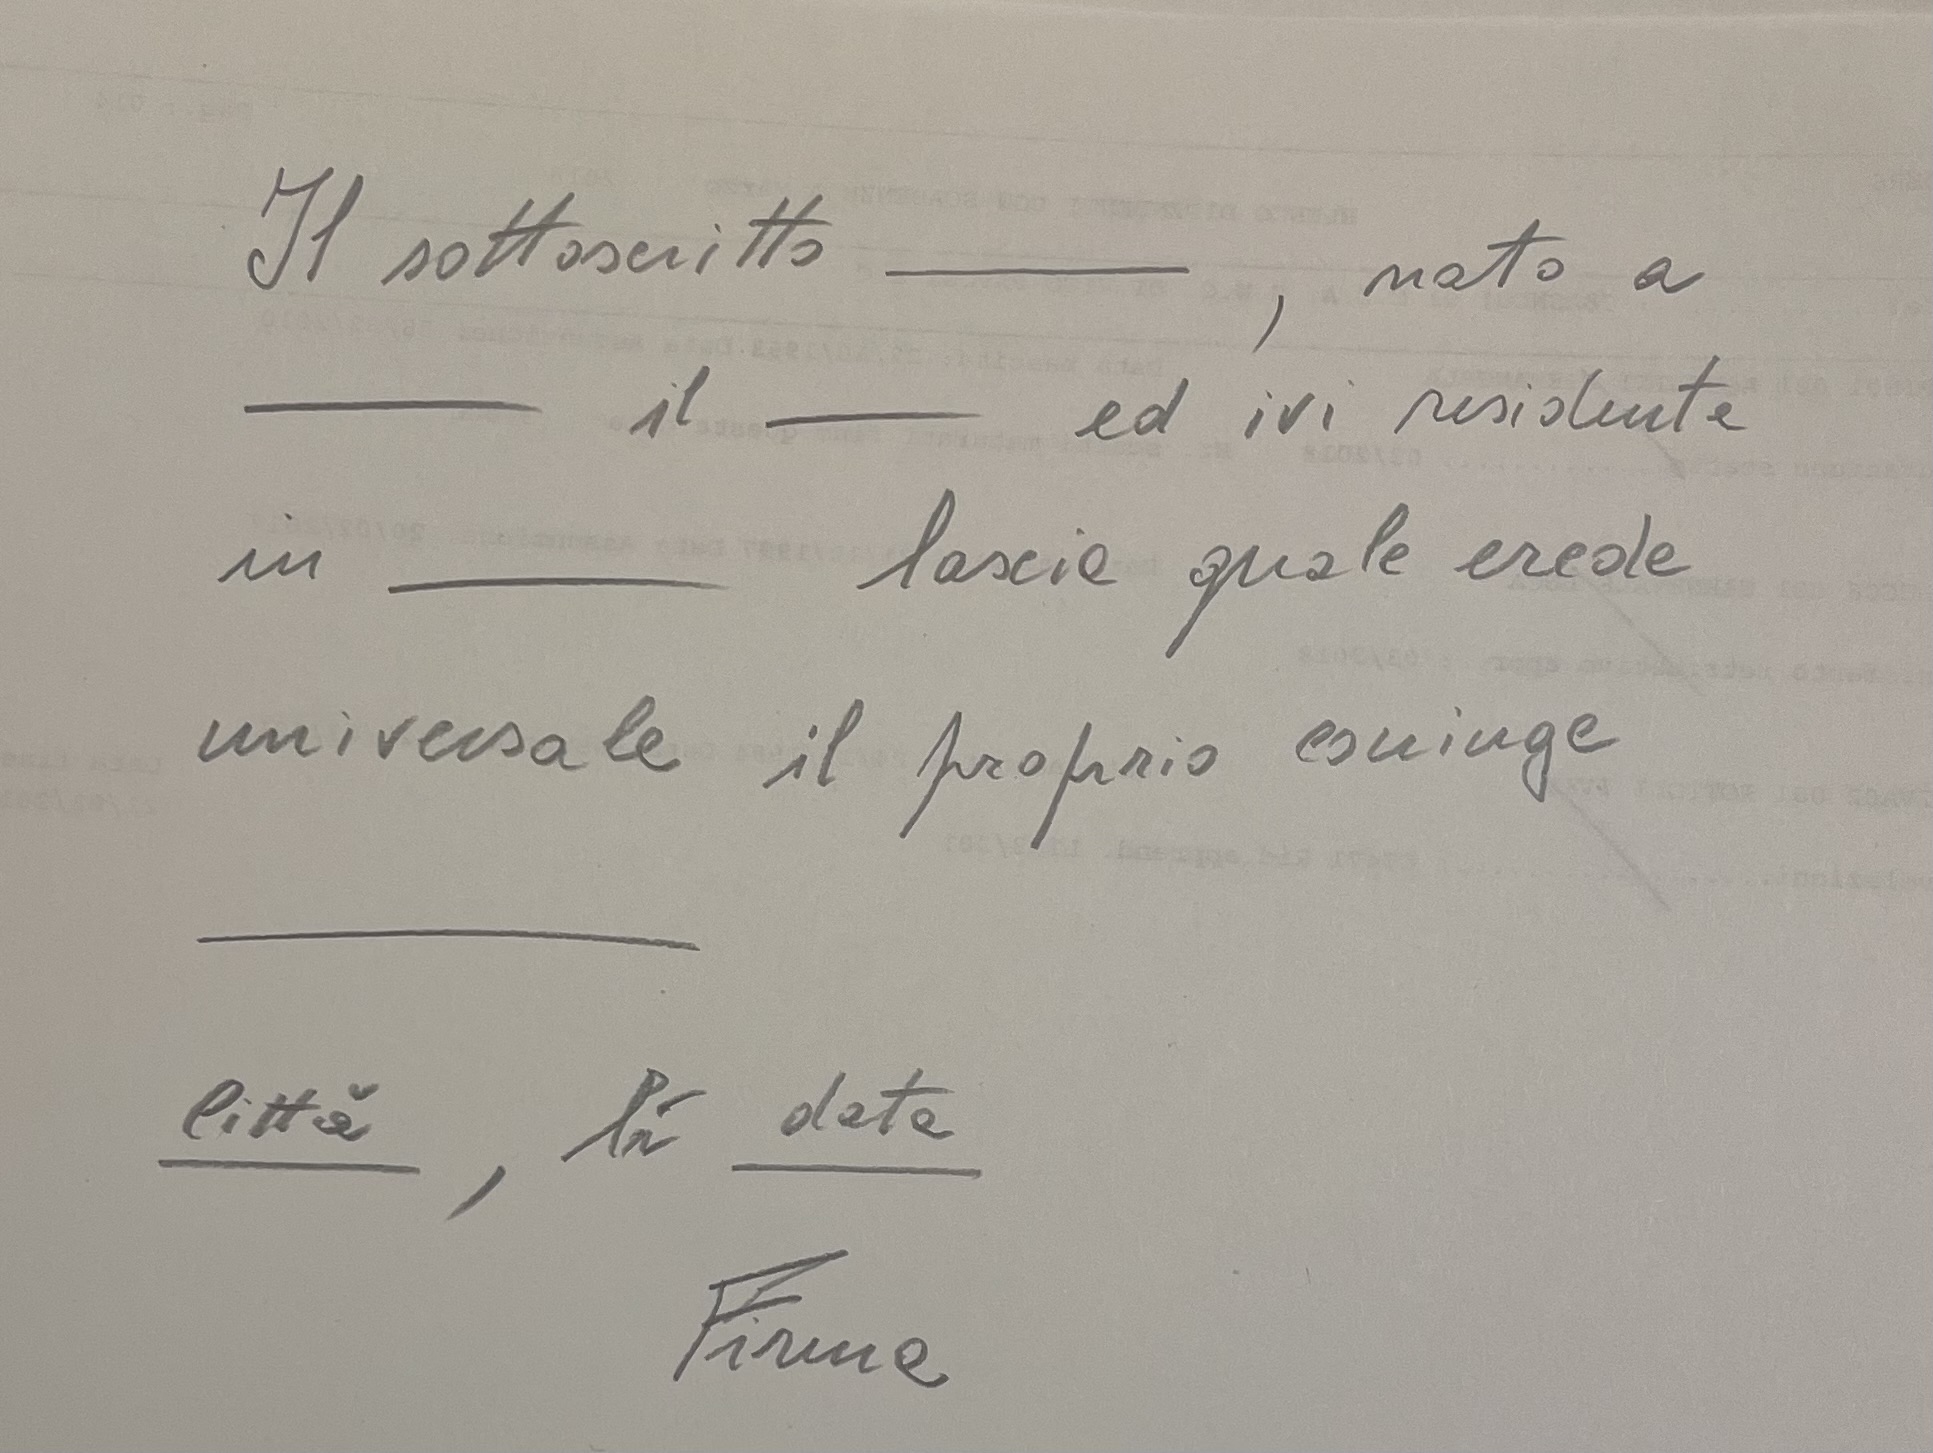 Il sottoscritto ________, nato a
________ il ______ ed ivi residente
in ________ lascia quale erede
universale il proprio coniuge
____________
Città, lì data
Firma